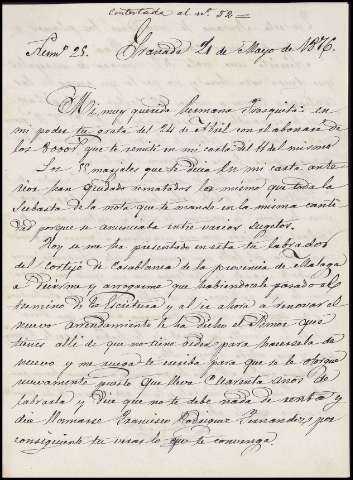 Contestada al nº 52
Numº 25. Granada 21 de Mayo de 1876.
Mi muy querida hermana Frasquita: en
mi poder tu grata del 24 de Abril con el abonaré
de los que te remití en mi carta del 11 del mismo
Los 55 marjales que te decia en mi carta ante
rior han quedado rematados lo mismo que toda la
Subasta de la nota que te mandé en la misma canti
dad porque se anunciaba entre varios sugetos.
Hoy se me ha presentado en esta tu labrador
del Cortijo de Casablanca de la provincia de Malaga
a decirme y que habiendole pasado el
termino de la Escritura y al ir ahora a renovar el
nuevo arrendamiento le ha dicho el Señor que
tienes alli de que no tiene orden para hacersela de
nuevo y me ruega te escriba para que se le otorgue
nuevamente puesto que lleva Cuarenta años de
labrarla y dice que no te debe nada de renta y
dice llamarse Francisco Rodriguez Fernandez, por
consiguiente tu veras lo que te convenga.